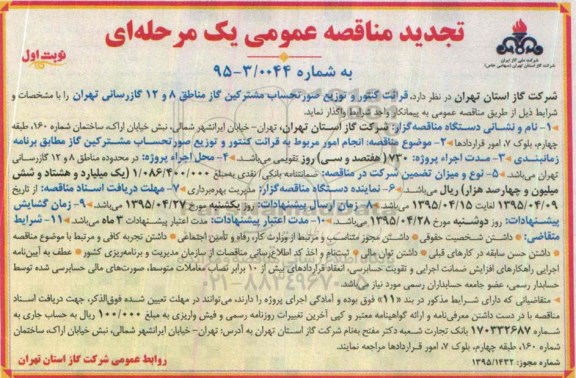 تجدید مناقصه عمومی یک مرحله‌ای
نوبت اول
به شماره ۹۵-۳/۰۰۴۴
شرکت ملی گاز ایران
شرکت گاز استان تهران (سهامی خاص)
شرکت گاز استان تهران در نظر دارد، قرائت کنتور و توزیع صورتحساب مشترکین گاز مناطق ۸ و ۱۲ گازرسانی تهران را با مشخصات و
شرایط ذیل از طریق مناقصه عمومی به پیمانکار واجد شرایط واگذار نماید.
۱- نام و نشانی دستگاه مناقصه‌گزار: شرکت گاز استان تهران، تهران- خیابان ایرانشهر شمالی، نبش خیابان اراک، ساختمان شماره ۱۶۰، طبقه
چهارم، بلوک ۷، امور قراردادها ۲- موضوع مناقصه: انجام امور مربوط به قرائت کنتور و توزیع صورتحساب مشترکین گاز مطابق برنامه
زمانبندی ۳- مدت اجراء پروژه: ۷۳۰ (هفتصد و سی) روز تقویمی می‌باشد. ۴- محل اجراء پروژه: در محدوده مناطق ۸ و ۱۲ گازرسانی
تهران می‌باشد ۵- نوع و میزان تضمین شرکت در مناقصه: ضمانتنامه بانکی/ نقدی به‌مبلغ ۱/۰۸۶/۴۰۰/۰۰۰ (یک میلیارد و هشتاد و شش
میلیون و چهارصد هزار) ریال می‌باشد. ۶- نماینده دستگاه مناقصه‌گزار: مدیریت بهره‌برداری ۷- مهلت دریافت اسناد مناقصه: از تاریخ
۱۳۹۵/۰۴/۰۹ لغایت ۱۳۹۵/۰۴/۱۵ می‌باشد ۸- زمان ارسال پیشنهادات: روز یکشنبه مورخ ۱۳۹۵/۰۴/۲۷ می‌باشد. ۹- زمان گشایش
پیشنهادات: روز دوشنبه مورخ ۱۳۹۵/۰۴/۲۸ می‌باشد ۱۰- مدت اعتبار پیشنهادات: مدت اعتبار پیشنهادات ۳ ماه می‌باشد ۱۱- شرایط
متقاضی: • داشتن شخصیت حقوقی • داشتن مجوز متناسب و مرتبط از وزارت کار، رفاه و تأمین اجتماعی • داشتن تجربه کافی و مرتبط با موضوع مناقصه
• داشتن حسن سابقه در کارهای قبلی • داشتن توان مالی • ثبت‌نام و اخذ کد اطلاع‌رسانی مناقصات از سازمان مدیریت و برنامه‌ریزی کشور • عطف به آیین‌نامه
اجرایی راهکارهای افزایش ضمانت اجرایی و تقویت حسابرسی، انعقاد قراردادهای بیش از ۱۰ برابر نصاب معاملات متوسط، صورت‌های مالی حسابرسی شده توسط
حسابدار رسمی، عضو جامعه حسابداران رسمی مورد نیاز می‌باشد.
• متقاضیانی که دارای شرایط مذکور در بند «۱۱» فوق بوده و آمادگی اجرای پروژه را دارند، می‌توانند در مهلت تعیین شده فوق‌الذکر، جهت دریافت اسناد
مناقصه با در دست داشتن معرفی‌نامه و ارائه گواهینامه معتبر و کپی آخرین تغییرات روزنامه رسمی و فیش واریزی به مبلغ ۱۰۰/۰۰۰ ریال به حساب جاری به
شماره ۱۷۰۳۳۲۶۸۷ بانک تجارت شعبه دکتر مفتح به‌نام شرکت گاز استان تهران به آدرس: تهران- خیابان ایرانشهر شمالی، نبش خیابان اراک، ساختمان
شماره ۱۶۰، طبقه چهارم، بلوک ۷، امور قراردادها مراجعه نمایند.
شماره مجوز: ۱۳۹۵/۱۴۳۲
روابط عمومی شرکت گاز استان تهران